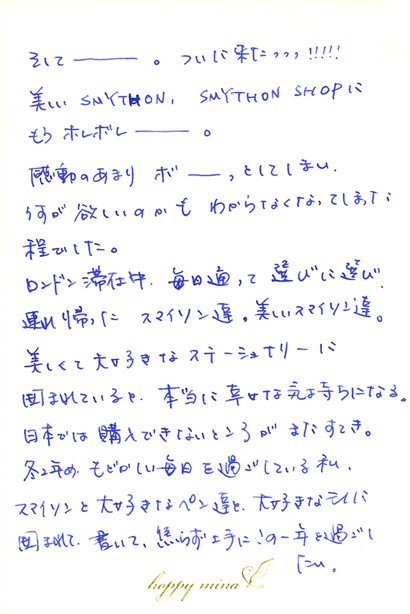 そして―――。ついに来たっっっ!!!!!
美しい SMYTHON, SMYTHON SHOPに
もう ホレボレ―――。
感動のあまり ボ――っとしてしまい、
何が欲しいのかも わからなくなってしまった
程でした。
ロンドン滞在中、毎日通って 選びに選び、
連れ帰った スマイソン達。美しいスマイソン達。
美しくて大好きなステーショナリーに
囲まれていると、本当に幸せな気持ちになる。
日本では購入できないところが またすてき。
年め、もどかしい毎日を過ごしている私、
スマイソンと大好きなペン達と、大好きなモノに
囲まれて、書いて、焦らず上手にこの一年を過ごし
たい。
happy mina